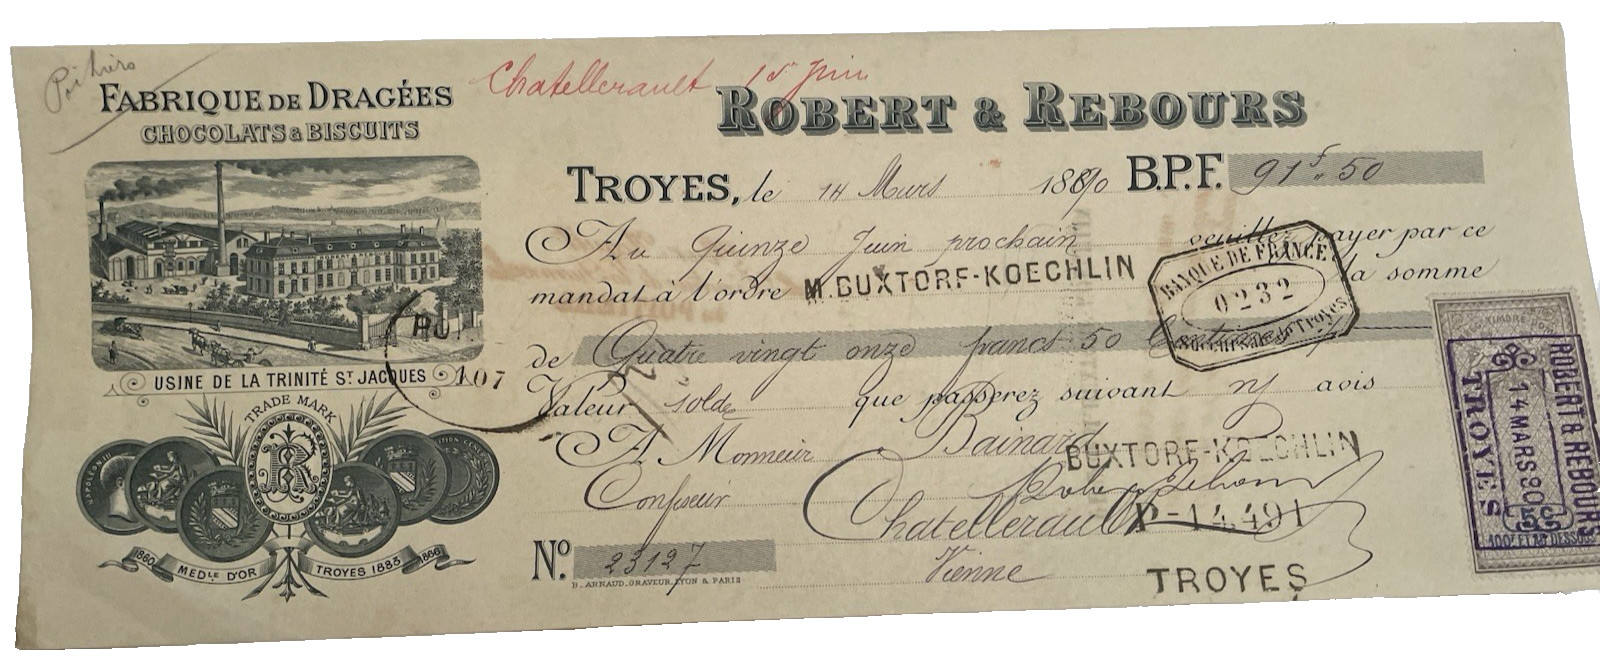 Poitiers
Chatellerault 15 Juin
FABRIQUE DE DRAGÉES
CHOCOLATS & BISCUITS
ROBERT & REBOURS
TROYES, le 14 Mars 1890 B.P.F. 91f.50
Au Quinze Juin prochain veuillez payer par ce
mandat à l'ordre M. BUXTORF-KOECHLIN la somme
BANQUE DE FRANCE
0232
SUCCURSALE DE TROYES
de Quatre vingt onze francs 50 Centimes
Valeur solde que passerez suivant n/ avis
A Monsieur Bainard
BUXTORF-KOECHLIN
Confiseur
Chatellerault
P-14.491
Vienne
TROYES
No. 23127
B. ARNAUD, GRAVEUR, LYON & PARIS
USINE DE LA TRINITÉ ST JACQUES
107
TRADE MARK
NAPOLEON III
1860 MEDLE D'OR TROYES 1883 1866
ROBERT & REBOURS
14 MARS 90
TROYES
100F ET AU DESSOUS